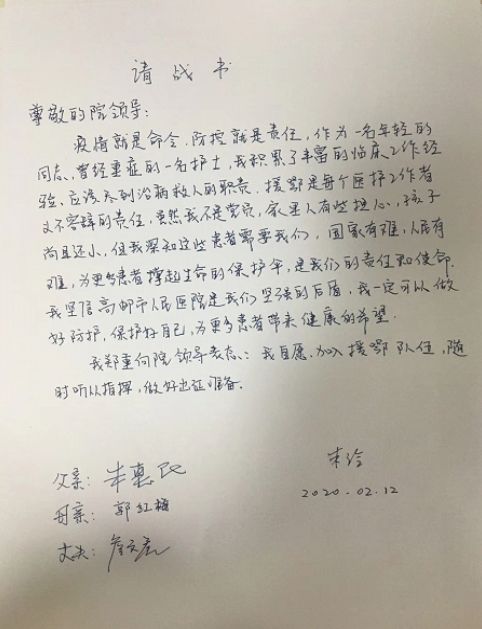 请战书
尊敬的院领导：
疫情就是命令，防控就是责任，作为一名年轻的
同志、曾经重症的一名护士，我积累了丰富的临床工作经
验，应该尽到治病救人的职责，援鄂是每个医护工作者
义不容辞的责任，虽然我不是党员，家里人有些担心，孩子
尚且还小，但我深知这些患者需要我们，国家有难，人民有
难，为更多患者撑起生命的保护伞，是我们的责任和使命。
我坚信高邮市人民医院是我们坚强的后盾，我一定可以做
好防护，保护好自己，为更多患者带来健康的希望。
我郑重向院领导表态：我自愿加入援鄂队伍，随
时听从指挥，做好出征准备。
朱玲
2020.02.12
父亲：朱惠民
母亲：郭红梅
丈夫：